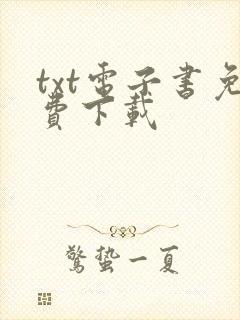 txt電子書免
費下載
驚蟄一夏